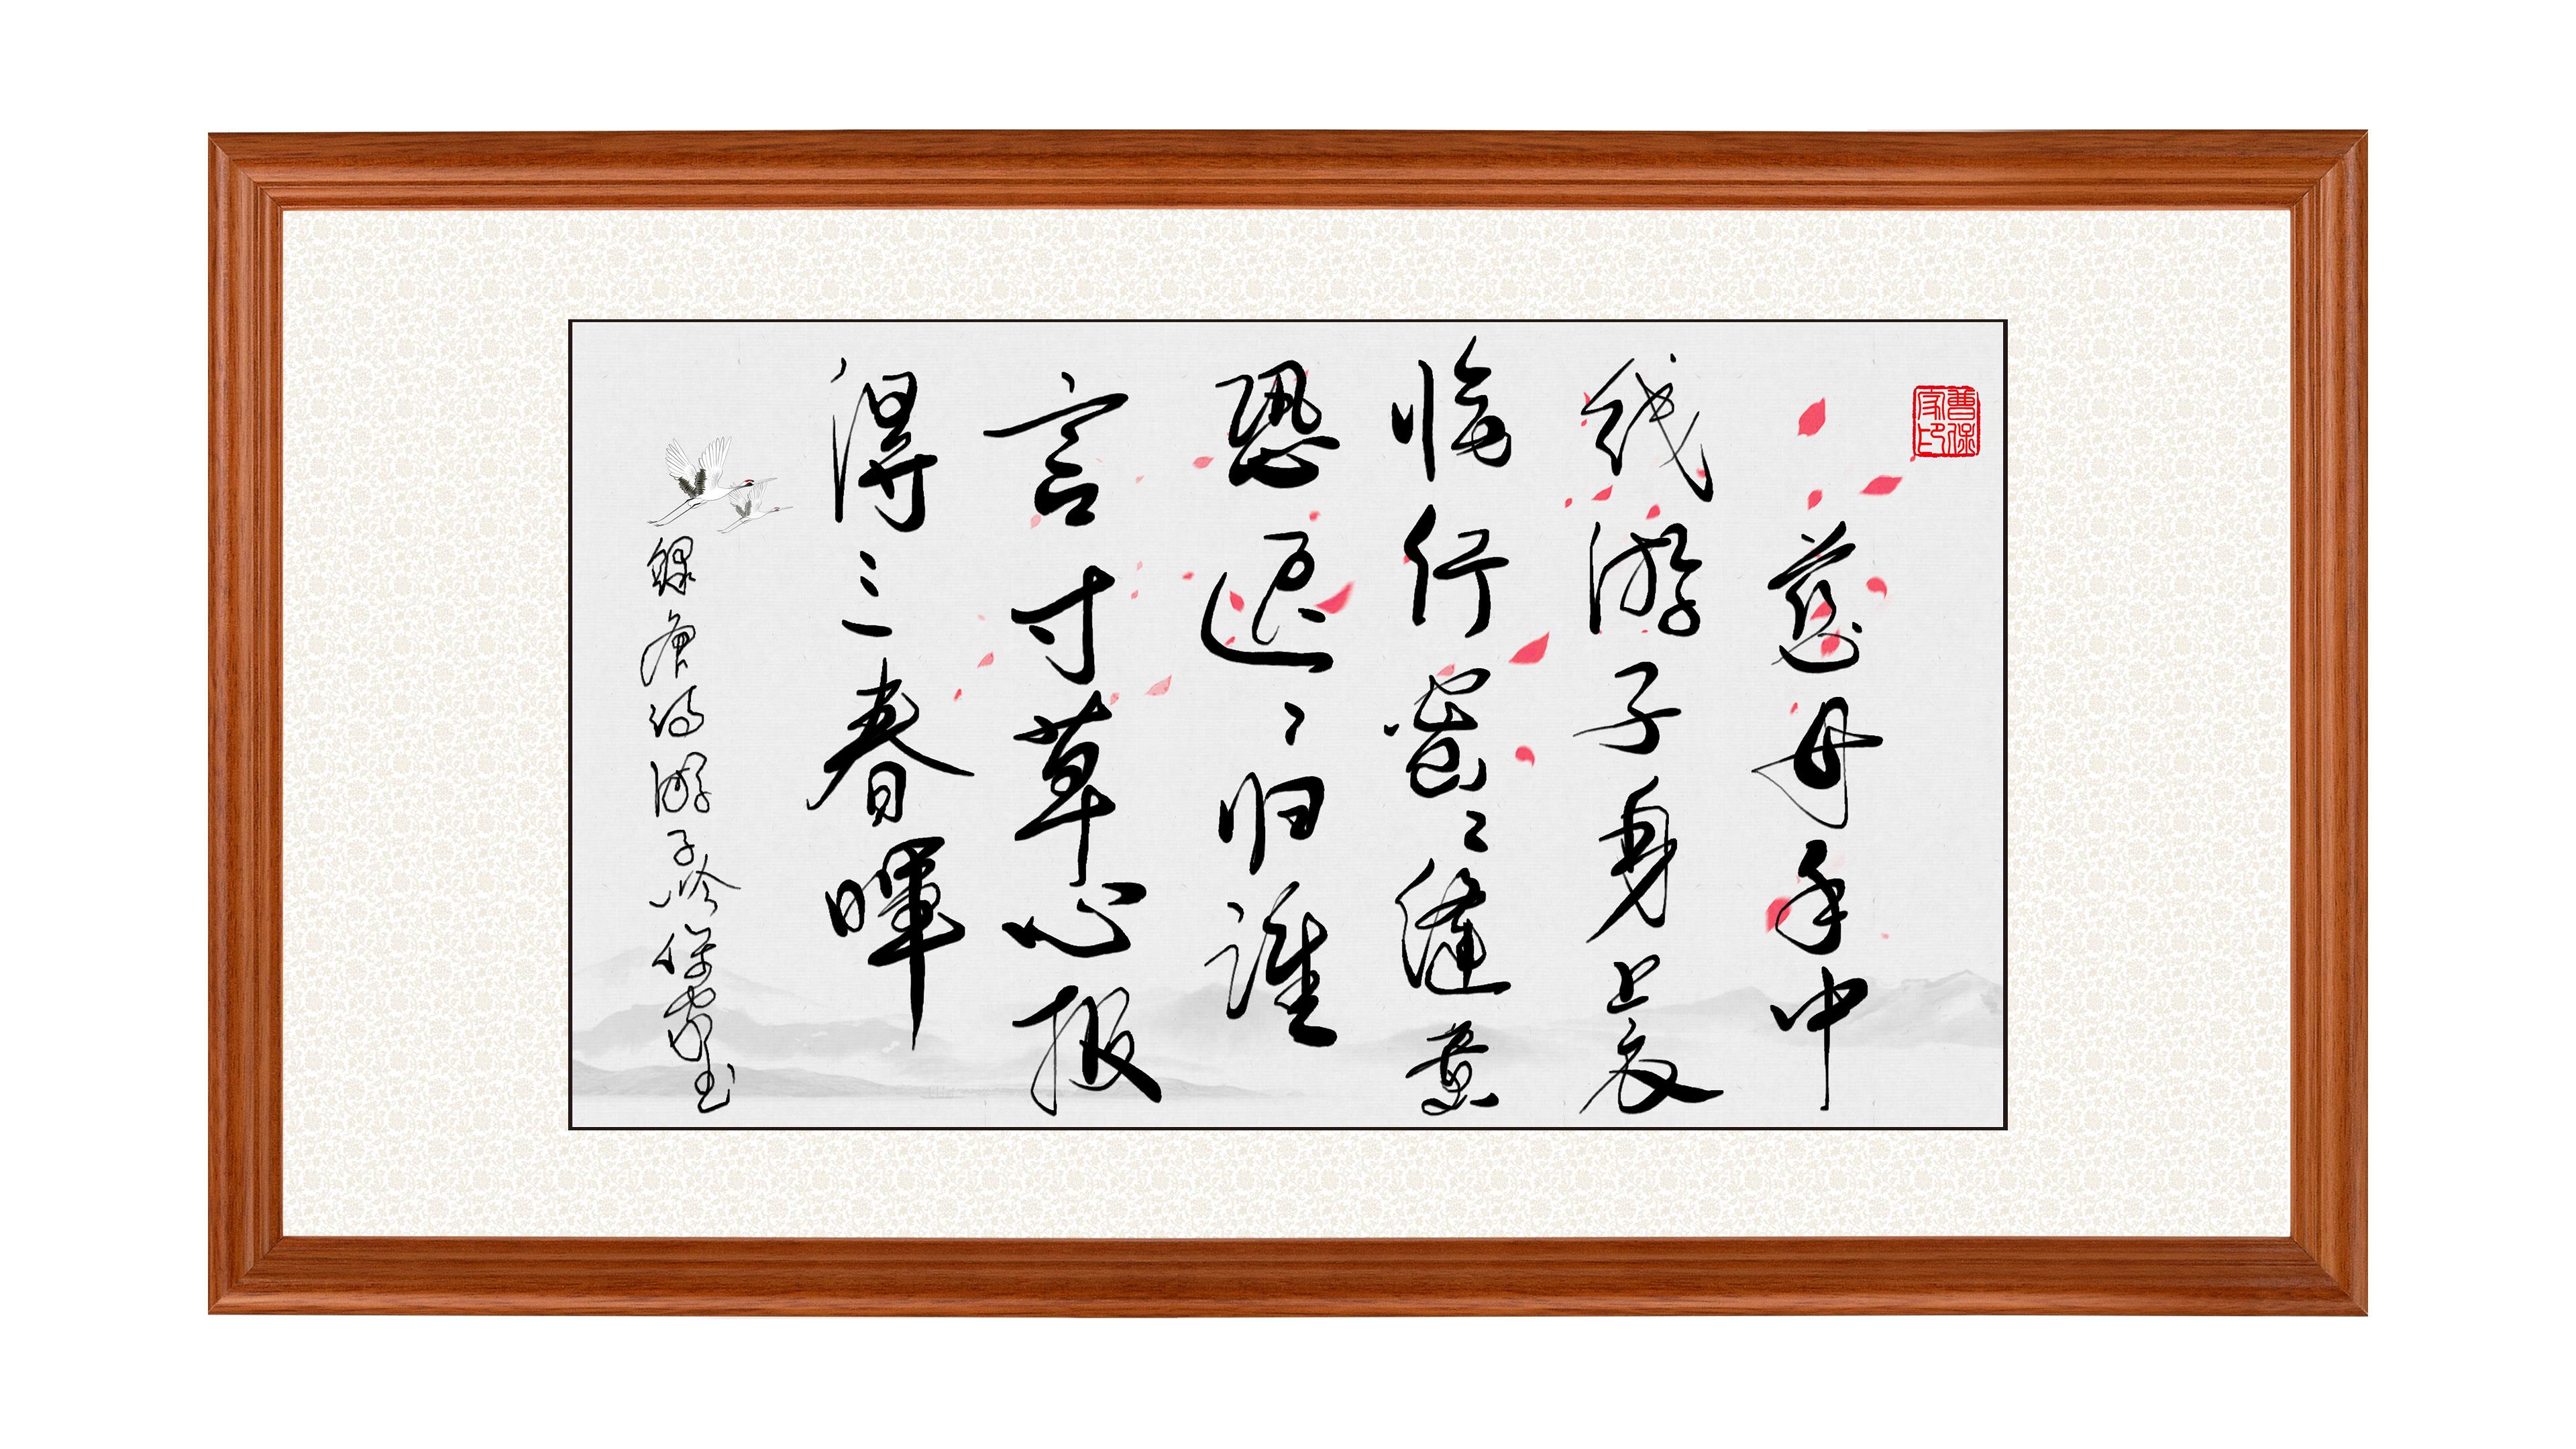 曹保家印
慈母手中
线游子身上衣
临行密々缝意
恐遲々归谁
言寸草心报
得三春暉
録唐诗游子吟保家书